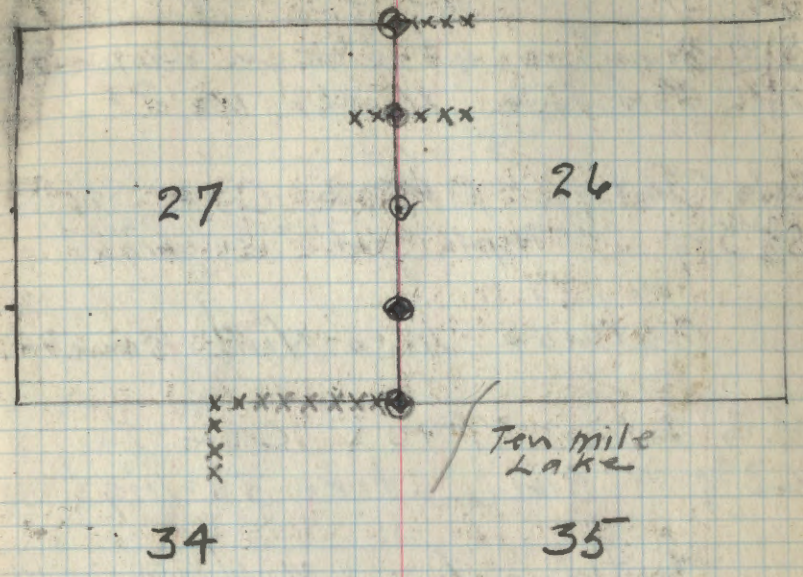 27
26
Ten mile
Lake
34
35